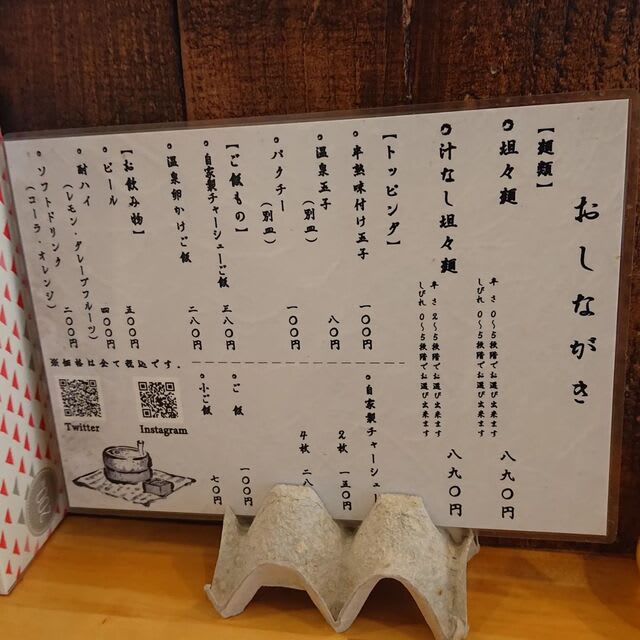 おしながき
【麺類】
坦々麺 八九〇円
辛さ 0〜5段階でお選び出来ます
しびれ 0〜5段階でお選び出来ます
汁なし坦々麺 八九〇円
辛さ 2〜5段階でお選び出来ます
しびれ 0〜5段階でお選び出来ます
【トッピング】
半熟味付け玉子 一〇〇円
温泉玉子 八〇円
（別皿）
パクチー 一〇〇円
（別皿）
自家製チャーシュー
2枚 一五〇円
4枚 二八
ご飯 一〇〇円
小ご飯 七〇円
【ご飯もの】
自家製チャーシューご飯 三八〇円
温泉卵かけご飯 二八〇円
【お飲み物】
ビール 五〇〇円
酎ハイ 四〇〇円
（レモン・グレープフルーツ）
ソフトドリンク 二〇〇円
（コーラ・オレンジ）
※価格は全て税込です。
Twitter
Instagram